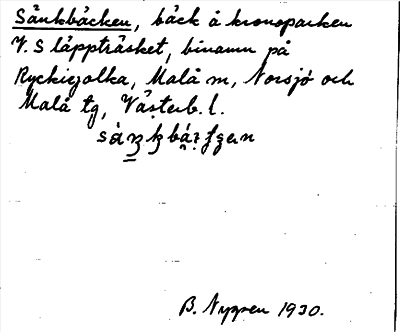 Sänkbäcken, bäck å kronoparken
V. S läppträsket, binamn på
Ryckiejolka, Malå m, Norsjö och
Malå tg, Västerb. l.
B. Nygren 1930.